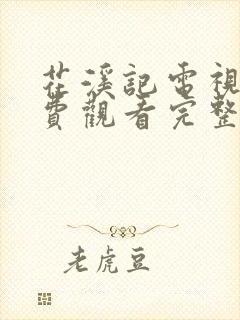 花溪記電視
費觀看完整
老虎豆